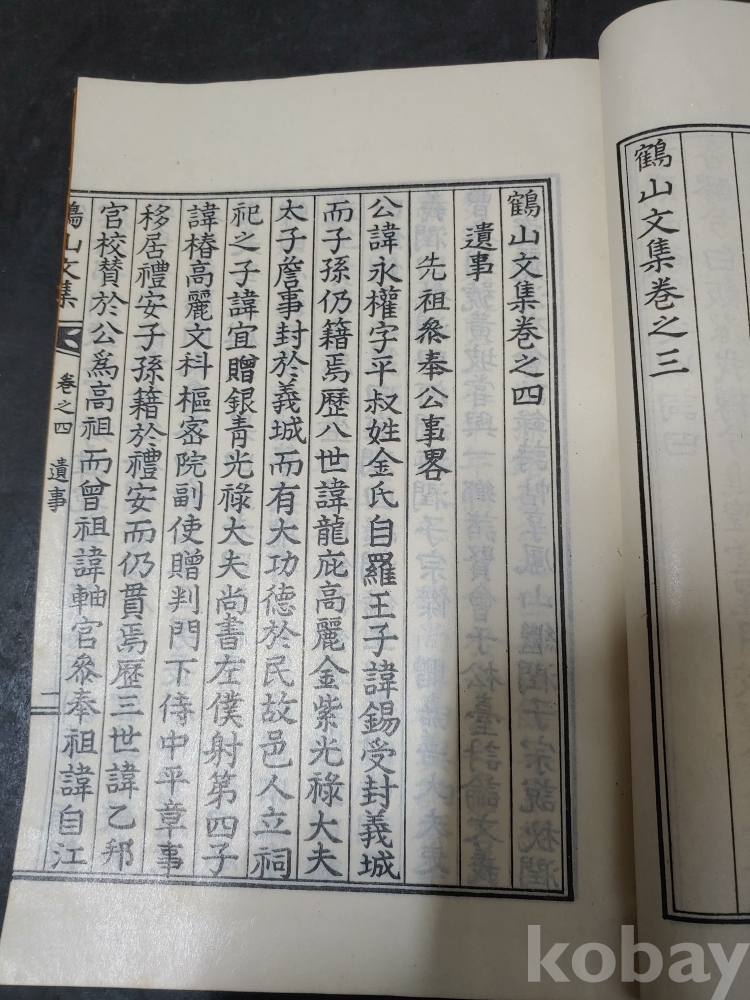 鶴山文集卷之三
鶴山文集卷之四
遺事
先祖叅奉公事畧
公諱永權字平叔姓金氏自羅王子諱錫受封義城
而子孫仍籍焉歷八世諱龍庇高麗金紫光祿大夫
太子詹事封於義城而有大功德於民故邑人立祠
祀之子諱宜贈銀青光祿大夫尚書左僕射第四子
諱椿高麗文科樞密院副使贈判門下侍中平章事
移居禮安子孫籍於禮安而仍貫焉歷三世諱乙邦
官校賛於公爲高祖而曾祖諱軸官叅奉祖諱自江
鶴山文集 卷之四 遺事 二
kobay